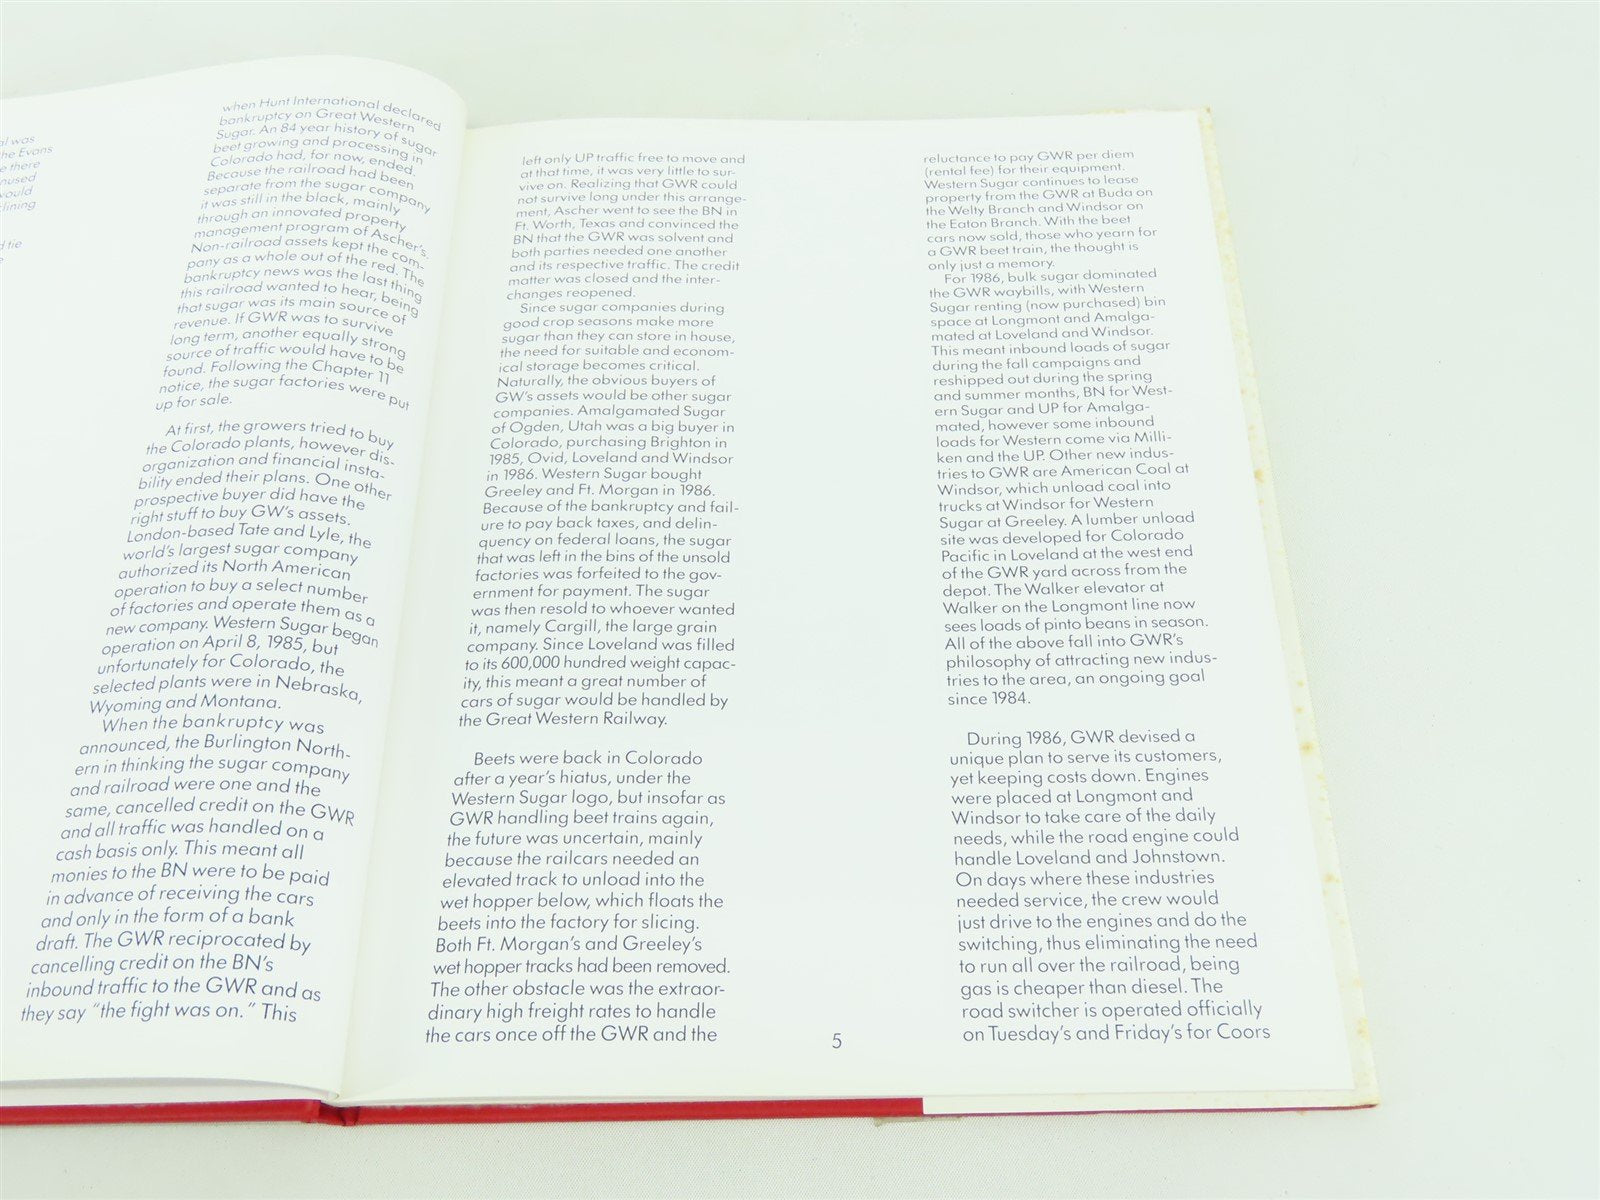 al was
the Evans
e there
nused
would
clining
d tie
when Hunt International declared
bankruptcy on Great Western
Sugar. An 84 year history of sugar
beet growing and processing in
Colorado had, for now, ended.
Because the railroad had been
separate from the sugar company
it was still in the black, mainly
through an innovated property
management program of Ascher's.
Non-railroad assets kept the com-
pany as a whole out of the red. The
bankruptcy news was the last thing
this railroad wanted to hear, being
that sugar was its main source of
revenue. If GWR was to survive
long term, another equally strong
source of traffic would have to be
found. Following the Chapter 11
notice, the sugar factories were put
up for sale.
At first, the growers tried to buy
the Colorado plants, however dis-
organization and financial insta-
bility ended their plans. One other
prospective buyer did have the
right stuff to buy GW's assets.
London-based Tate and Lyle, the
world's largest sugar company
authorized its North American
operation to buy a select number
of factories and operate them as a
new company. Western Sugar began
operation on April 8, 1985, but
unfortunately for Colorado, the
selected plants were in Nebraska,
Wyoming and Montana.
When the bankruptcy was
announced, the Burlington North-
ern in thinking the sugar company
and railroad were one and the
same, cancelled credit on the GWR
and all traffic was handled on a
cash basis only. This meant all
monies to the BN were to be paid
in advance of receiving the cars
and only in the form of a bank
draft. The GWR reciprocated by
cancelling credit on the BN's
inbound traffic to the GWR and as
they say "the fight was on." This
left only UP traffic free to move and
at that time, it was very little to sur-
vive on. Realizing that GWR could
not survive long under this arrange-
ment, Ascher went to see the BN in
Ft. Worth, Texas and convinced the
BN that the GWR was solvent and
both parties needed one another
and its respective traffic. The credit
matter was closed and the inter-
changes reopened.
Since sugar companies during
good crop seasons make more
sugar than they can store in house,
the need for suitable and econom-
ical storage becomes critical.
Naturally, the obvious buyers of
GW's assets would be other sugar
companies. Amalgamated Sugar
of Ogden, Utah was a big buyer in
Colorado, purchasing Brighton in
1985, Ovid, Loveland and Windsor
in 1986. Western Sugar bought
Greeley and Ft. Morgan in 1986.
Because of the bankruptcy and fail-
ure to pay back taxes, and delin-
quency on federal loans, the sugar
that was left in the bins of the unsold
factories was forfeited to the gov-
ernment for payment. The sugar
was then resold to whoever wanted
it, namely Cargill, the large grain
company. Since Loveland was filled
to its 600,000 hundred weight capac-
ity, this meant a great number of
cars of sugar would be handled by
the Great Western Railway.
Beets were back in Colorado
after a year's hiatus, under the
Western Sugar logo, but insofar as
GWR handling beet trains again,
the future was uncertain, mainly
because the railcars needed an
elevated track to unload into the
wet hopper below, which floats the
beets into the factory for slicing.
Both Ft. Morgan's and Greeley's
wet hopper tracks had been removed.
The other obstacle was the extraor-
dinary high freight rates to handle
the cars once off the GWR and the
reluctance to pay GWR per diem
(rental fee) for their equipment.
Western Sugar continues to lease
property from the GWR at Buda on
the Welty Branch and Windsor on
the Eaton Branch. With the beet
cars now sold, those who yearn for
a GWR beet train, the thought is
only just a memory.
For 1986, bulk sugar dominated
the GWR waybills, with Western
Sugar renting (now purchased) bin
space at Longmont and Amalga-
mated at Loveland and Windsor.
This meant inbound loads of sugar
during the fall campaigns and
reshipped out during the spring
and summer months, BN for West-
ern Sugar and UP for Amalga-
mated, however some inbound
loads for Western come via Milli-
ken and the UP. Other new indus-
tries to GWR are American Coal at
Windsor, which unload coal into
trucks at Windsor for Western
Sugar at Greeley. A lumber unload
site was developed for Colorado
Pacific in Loveland at the west end
of the GWR yard across from the
depot. The Walker elevator at
Walker on the Longmont line now
sees loads of pinto beans in season.
All of the above fall into GWR's
philosophy of attracting new indus-
tries to the area, an ongoing goal
since 1984.
During 1986, GWR devised a
unique plan to serve its customers,
yet keeping costs down. Engines
were placed at Longmont and
Windsor to take care of the daily
needs, while the road engine could
handle Loveland and Johnstown.
On days where these industries
needed service, the crew would
just drive to the engines and do the
switching, thus eliminating the need
to run all over the railroad, being
gas is cheaper than diesel. The
road switcher is operated officially
on Tuesday's and Friday's for Coors
5